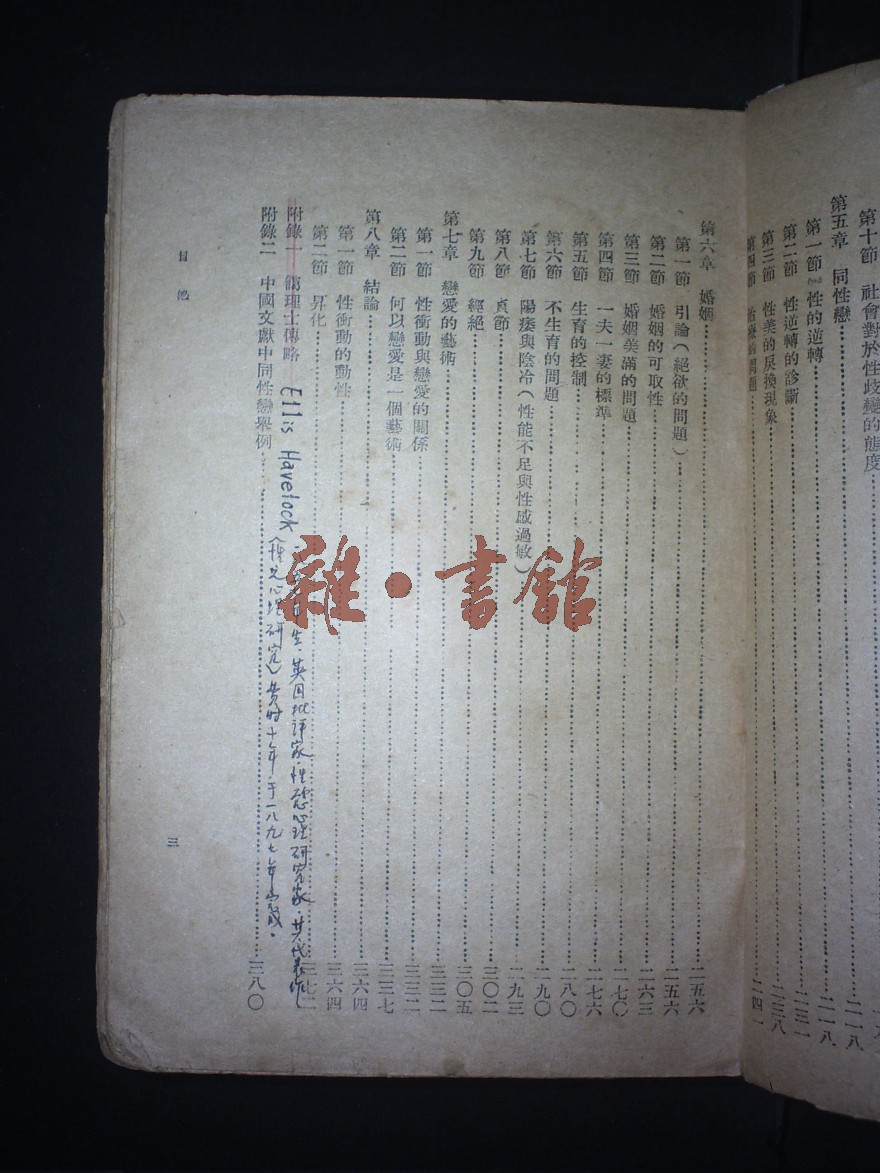 第十節 社會對於性歧變的態度
第五章 同性戀……二一八
第一節 性的逆轉……二一八
第二節 性逆轉的診斷……二三一
第三節 性美的戾換現象……二三八
第四節 治療的問題……二四一
第六章 婚姻……二五六
第一節 引論(絕欲的問題)……二五六
第二節 婚姻的可取性……二六三
第三節 婚姻美滿的問題……二七〇
第四節 一夫一妻的標準……二七六
第五節 生育的控制……二八〇
第六節 不生育的問題……二九〇
第七節 陽痿與陰冷(性能不足與性感過敏)……二九三
第八節 貞節……三〇二
第九節 經絕……三〇五
第七章 戀愛的藝術……三三二
第一節 性衝動與戀愛的關係……三三二
第二節 何以戀愛是一個藝術……三三七
第八章 結論……三六四
第一節 性衝動的動性……三六四
第二節 昇化……三七二
附錄一 靄理士傳略
Ellis Havelock
生、英国批评家、性心理研究家、其代表作
《性心理研究》费时十年于一八九七年
附錄二 中國文獻中同性戀舉例……三八〇
目
三
雜·書舘